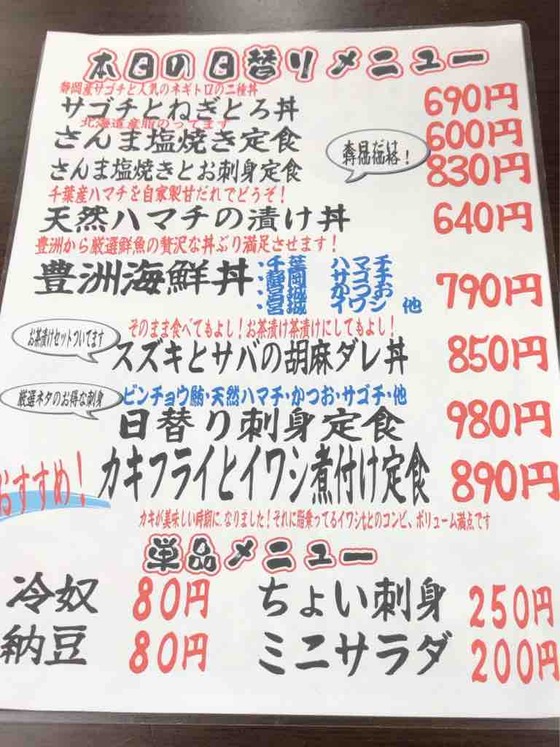 本日の日替りメニュー
静岡産サゴチと人気のネギトロの二種丼
サゴチとねぎとろ丼 690円
北海道産脂のってます
さんま塩焼き定食 600円
さんま塩焼きとお刺身定食 830円
千葉産ハマチを自家製甘だれでどうぞ!
天然ハマチの漬け丼 640円
豊洲から厳選鮮魚の贅沢な丼ぶり満足させます!
豊洲海鮮丼 790円
:千葉 ハマチ
:静岡 サゴチ
:宮城 かつお
:宮城 イワシ 他
そのまま食べてもよし!お茶漬け茶漬けにしてもよし!
お茶漬けセットついてます
スズキとサバの胡麻ダレ丼 850円
厳選ネタのお得な刺身
ビンチョウ鮪・天然ハマチ・かつお・サゴチ・他
日替り刺身定食 980円
おすすめ!
カキフライとイワシ煮付け定食 890円
カキが美味しい時期に.なりました!それに脂乗ってるイワシtとのコンビ、ボリューム満点です
単品メニュー
冷奴 80円
ちょい刺身 250円
納豆 80円
ミニサラダ 200円